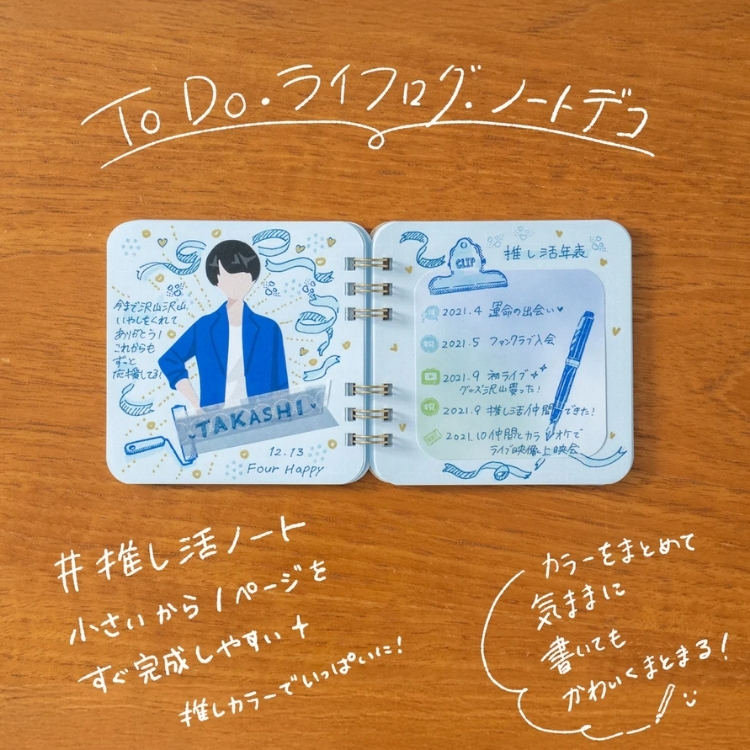 To Do・ライフログ・ノートデコ
今まで沢山沢山
いやしをくれて
ありがとう！
これからも
ずっと
応援してる！
TAKASHI
12.13
Four Happy
CLIP
推し活年表
2021.4 運命の出会い♥
2021.5 ファンクラブ入会
2021.9 初ライブ
グッズ沢山買った！
祝
2021.9 推し活仲間できた！
2021.10 仲間とカラオケで
ライブ映像上映会
#推し活ノート
小さいから1ページを
すぐ完成しやすい+
推しカラーでいっぱいに！
カラーをまとめて
気ままに
書いても
かわいくまとまる！